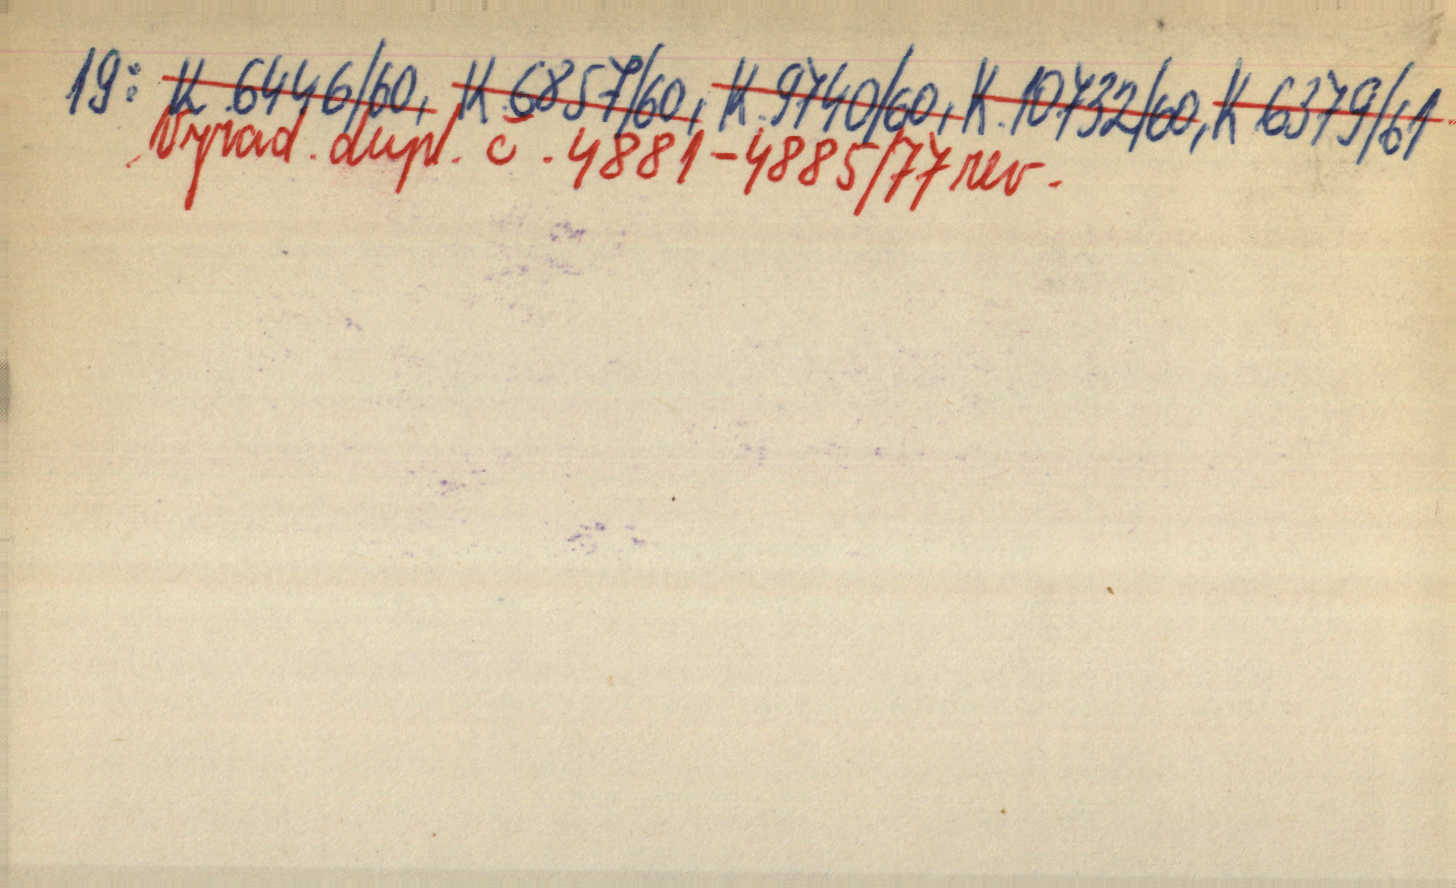 19: K 6446/60, K 6857/60, K. 9740/60, K. 10732/60, K 6379/61
Vyrad. dupl. č. 4881-4885/77 rev.